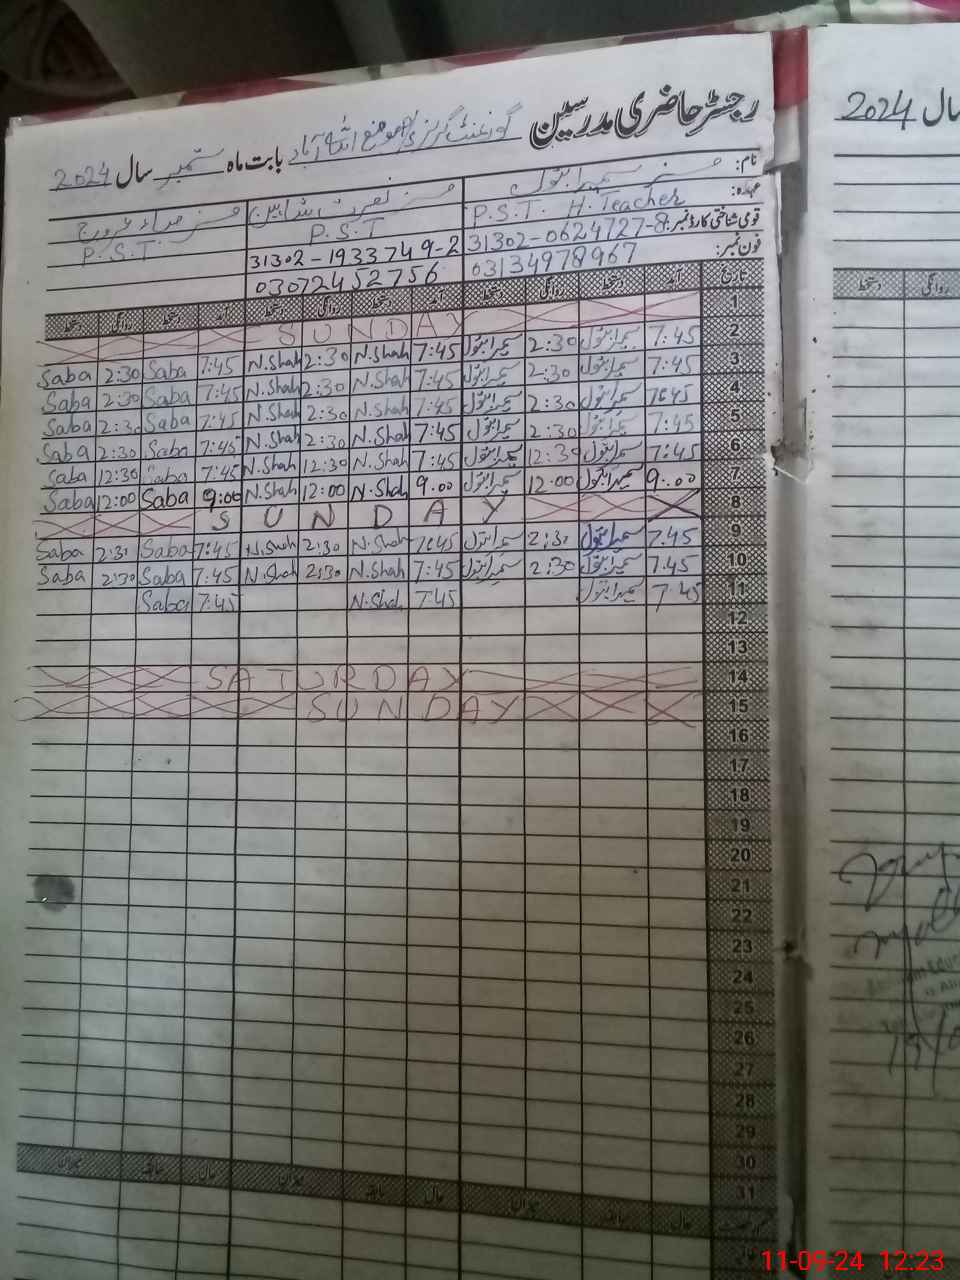 رجسٹر حاضری مدرسین
گورنمنٹ گرلز موضع اللہ آباد بابت ماہ ستمبر سال 2024
نام: مسز سمیرا بتول مسز نصرت شاہین مسز
عہدہ: P.S.T. H.Teacher P.S.T P.S.T.
قومی شناختی کارڈ نمبر: 31302-0624727-8 31302-1933749-2
فون نمبر: 03134978967 03072452756
تاریخ آمد دستخط روانگی دستخط آمد دستخط روانگی دستخط آمد دستخط روانگی دستخط
1 SUNDAY
2 7:45 سمیرا بتول 2:30 سمیرا بتول 7:45 N.Shah 2:30 N.Shah 7:45 Saba 2:30 Saba
3 7:45 سمیرا بتول 2:30 سمیرا بتول 7:45 N.Shah 2:30 N.Shah 7:45 Saba 2:30 Saba
4 7:45 سمیرا بتول 2:30 سمیرا بتول 7:45 N.Shah 2:30 N.Shah 7:45 Saba 2:30 Saba
5 7:45 سمیرا بتول 2:30 سمیرا بتول 7:45 N.Shah 2:30 N.Shah 7:45 Saba 2:30 Saba
6 7:45 سمیرا بتول 12:30 سمیرا بتول 7:45 N.Shah 12:30 N.Shah 7:45 Saba 12:30 Saba
7 9:00 سمیرا بتول 12:00 سمیرا بتول 9:00 N.Shah 12:00 N.Shah 9:00 Saba 12:00 Saba
8 SUNDAY
9 7:45 سمیرا بتول 2:30 سمیرا بتول 7:45 N.Shah 2:30 N.Shah 7:45 Saba 2:30 Saba
10 7:45 سمیرا بتول 2:30 سمیرا بتول 7:45 N.Shah 2:30 N.Shah 7:45 Saba 2:30 Saba
11 7:45 سمیرا بتول 7:45 N.Shah 7:45 Saba
12
13
14 SATURDAY
15 SUNDAY
16
17
18
19
20
21
22
23
24
25
26
27
28
29
30
31
حال سابقہ میزان حال سابقہ میزان حال سابقہ میزان
سال 2024
روانگی دستخط
11-09-24 12:23